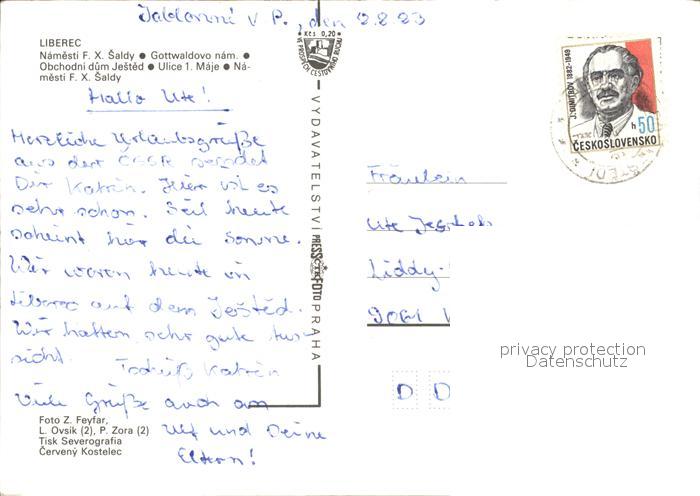 Jablonné v P., den 2.8.83
LIBEREC
Náměstí F. X. Šaldy ● Gottwaldovo nám. ●
Obchodní dům Ještěd ● Ulice 1. Máje ● Ná-
městí F. X. Šaldy
Hallo Ute!
Herzliche Urlaubsgrüße
aus der ČSSR sendet
Dir Katrin. Hier ist es
sehr schön. Seit heute
scheint hier die Sonne.
Wir waren heute in
Liberec auf dem Ještěd.
Wir hatten sehr gute Aus-
sicht. Tschüß Katrin
Viele Grüße auch an
Ulf und Deine
Eltern!
Foto Z. Feyfar,
L. Ovsík (2), P. Zora (2)
Tisk Severografia
Červený Kostelec
Kčs 0,20
VE PROSPĚCH CESTOVNÍHO RUCHU
VYDAVATELSTVÍ PRESSFOTO PRAHA
J. DIMITROV 1882-1949
h 50
ČESKOSLOVENSKO
Fräulein
Ute
Liddy-
9061
D D
privacy protection
Datenschutz